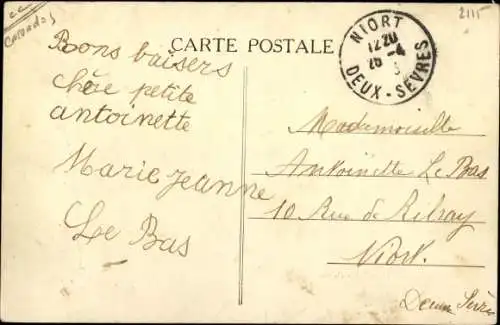 cc
Calvados
2115
CARTE POSTALE
NIORT
1220
26-4
DEUX-SÈVRES
Bons baisers
chère petite
antoinette
Marie Jeanne
Le Bas
Mademoiselle
Antoinette Le Bas
10 Rue de
Niort.
Deux Sèvres